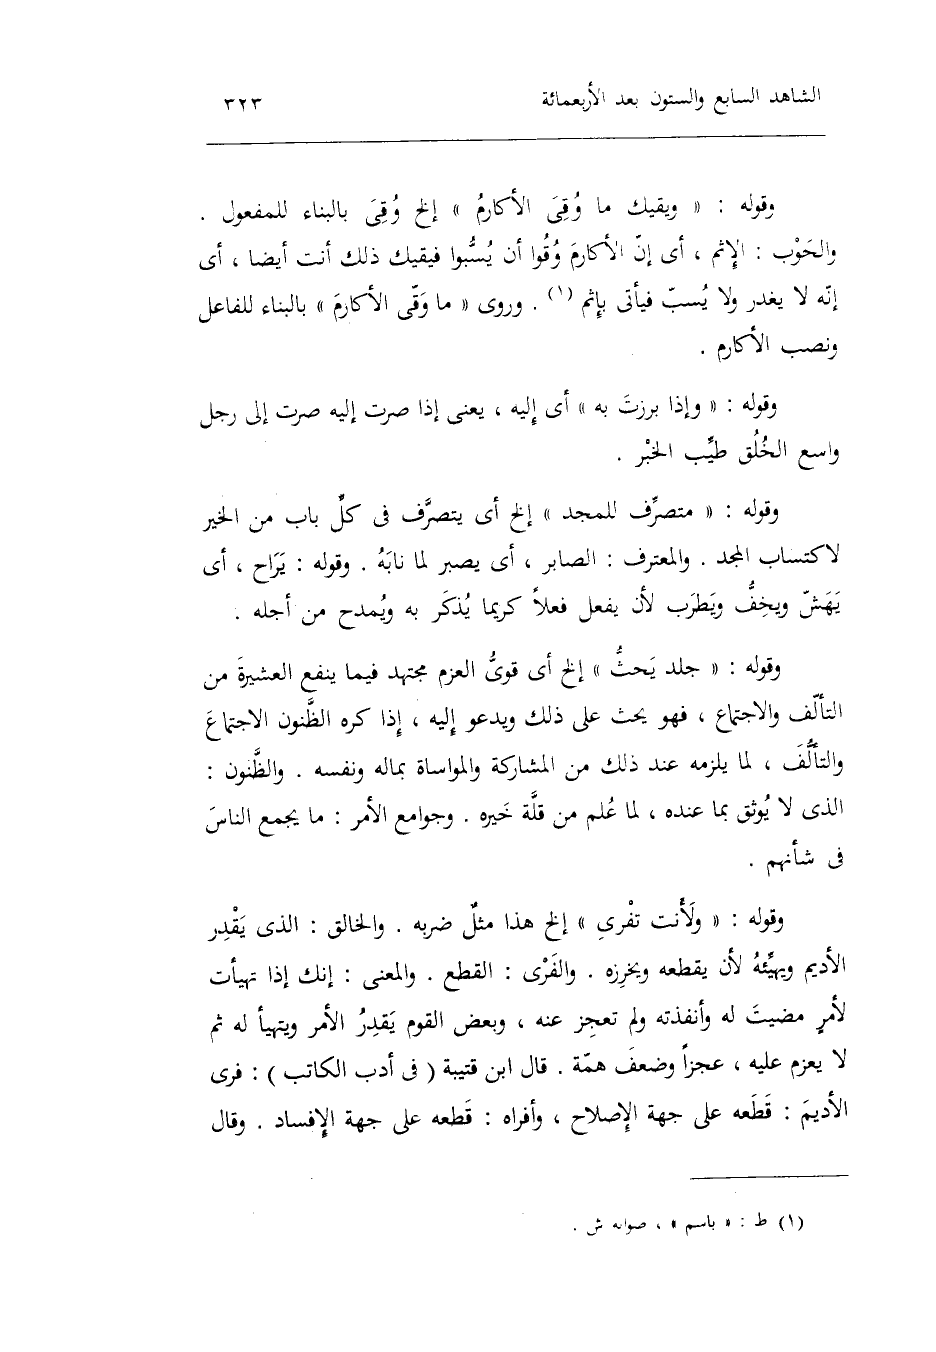 الشاهد السابع والستون بعد الأربعمائة ٣٢٣
وقوله : « ويقيك ما وُقِىَ الأكارمُ » إلخ وُقِىَ بالبناء للمفعول .
والحَوْب : الإِثم ، أى إنّ الأكارمَ وُقُوا أن يُسُّبوا فيقيك ذلك أنت أيضا ، أى
إنّه لا يغدر ولا يُسبّ فيأتى بإِثم (١) . وروى « ما وَقّى الأكارمَ » بالبناء للفاعل
ونصب الأكارم .
وقوله : « وإذا برزتَ به » أى إليه ، يعنى إذا صرت إليه صرت إلى رجل
واسع الخُلُق طيِّب الخبْر .
وقوله : « متصرِّف للمجد » إلخ أى يتصرَّف فى كلِّ باب من الخير
لاكتساب المجد . والمعترف : الصابر ، أى يصبر لما نابَهُ . وقوله : يَرَاح ، أى
يَهَشّ ويخِفُّ ويَطرَب لأن يفعل فعلاً كريما يُذكَر به ويُمدح من أجله .
وقوله : « جلد يَحثُّ » إلخ أى قوىُّ العزم مجتهد فيما ينفع العشيرةَ من
التألّف والاجتماع ، فهو يحث على ذلك ويدعو إليه ، إذا كره الظَّنون الاجتماعَ
والتألُّفَ ، لما يلزمه عند ذلك من المشاركة والمواساة بماله ونفسه . والظَّنون :
الذى لا يُوثق بما عنده ، لما عُلم من قلَّة خَيره . وجوامع الأمر : ما يجمع الناسَ
فى شأنهم .
وقوله : « ولَأَنت تفْرىِ » إلخ هذا مثلٌ ضربه . والخالق : الذى يَقْدِر
الأديم ويهيِّئهُ لأن يقطعه ويخرِزه . والفَرْى : القطع . والمعنى : إنك إذا تهيأت
لأمرٍ مضيتَ له وأنفذته ولم تعجِز عنه ، وبعض القوم يَقدِرُ الأمر ويتهيأ له ثم
لا يعزم عليه ، عجزاً وضعفَ همّة . قال ابن قتيبة ( فى أدب الكاتب ) : فرى
الأديمَ : قَطَعه على جهة الإِصلاح ، وأفراه : قَطعه على جهة الإِفساد . وقال
(١) ط : « باسم » ، صوابه ش .